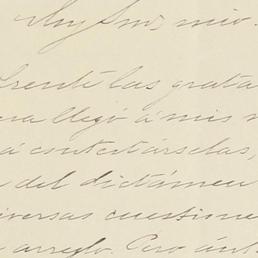 Muy Sr. mio.
frente las grata
llegó á mis
á contestárselas,
del dictámen
iversas cuestione
arreglo. Pero ánt